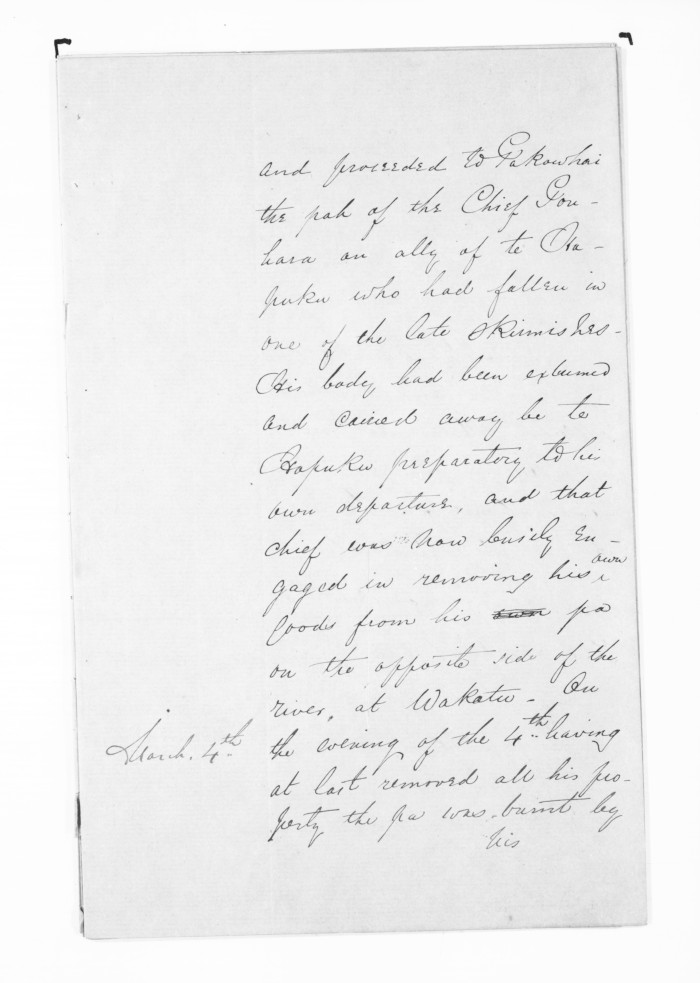 and proceeded to Pakowhai
the pah of the Chief Pou-
hara an ally of te Ha-
puku who had fallen in
one of the late skirmishes-
His body had been exhumed
and caired away be te
Hapuku preparatory to his
own departure, and that
chief was now busily en-
gaged in removing his own
goods from his own pa
on the opposite side of the
river, at Wakatu - On
March. 4th the evening of the 4th having
at last removed all his pro-
perty the pa was burnt by
his